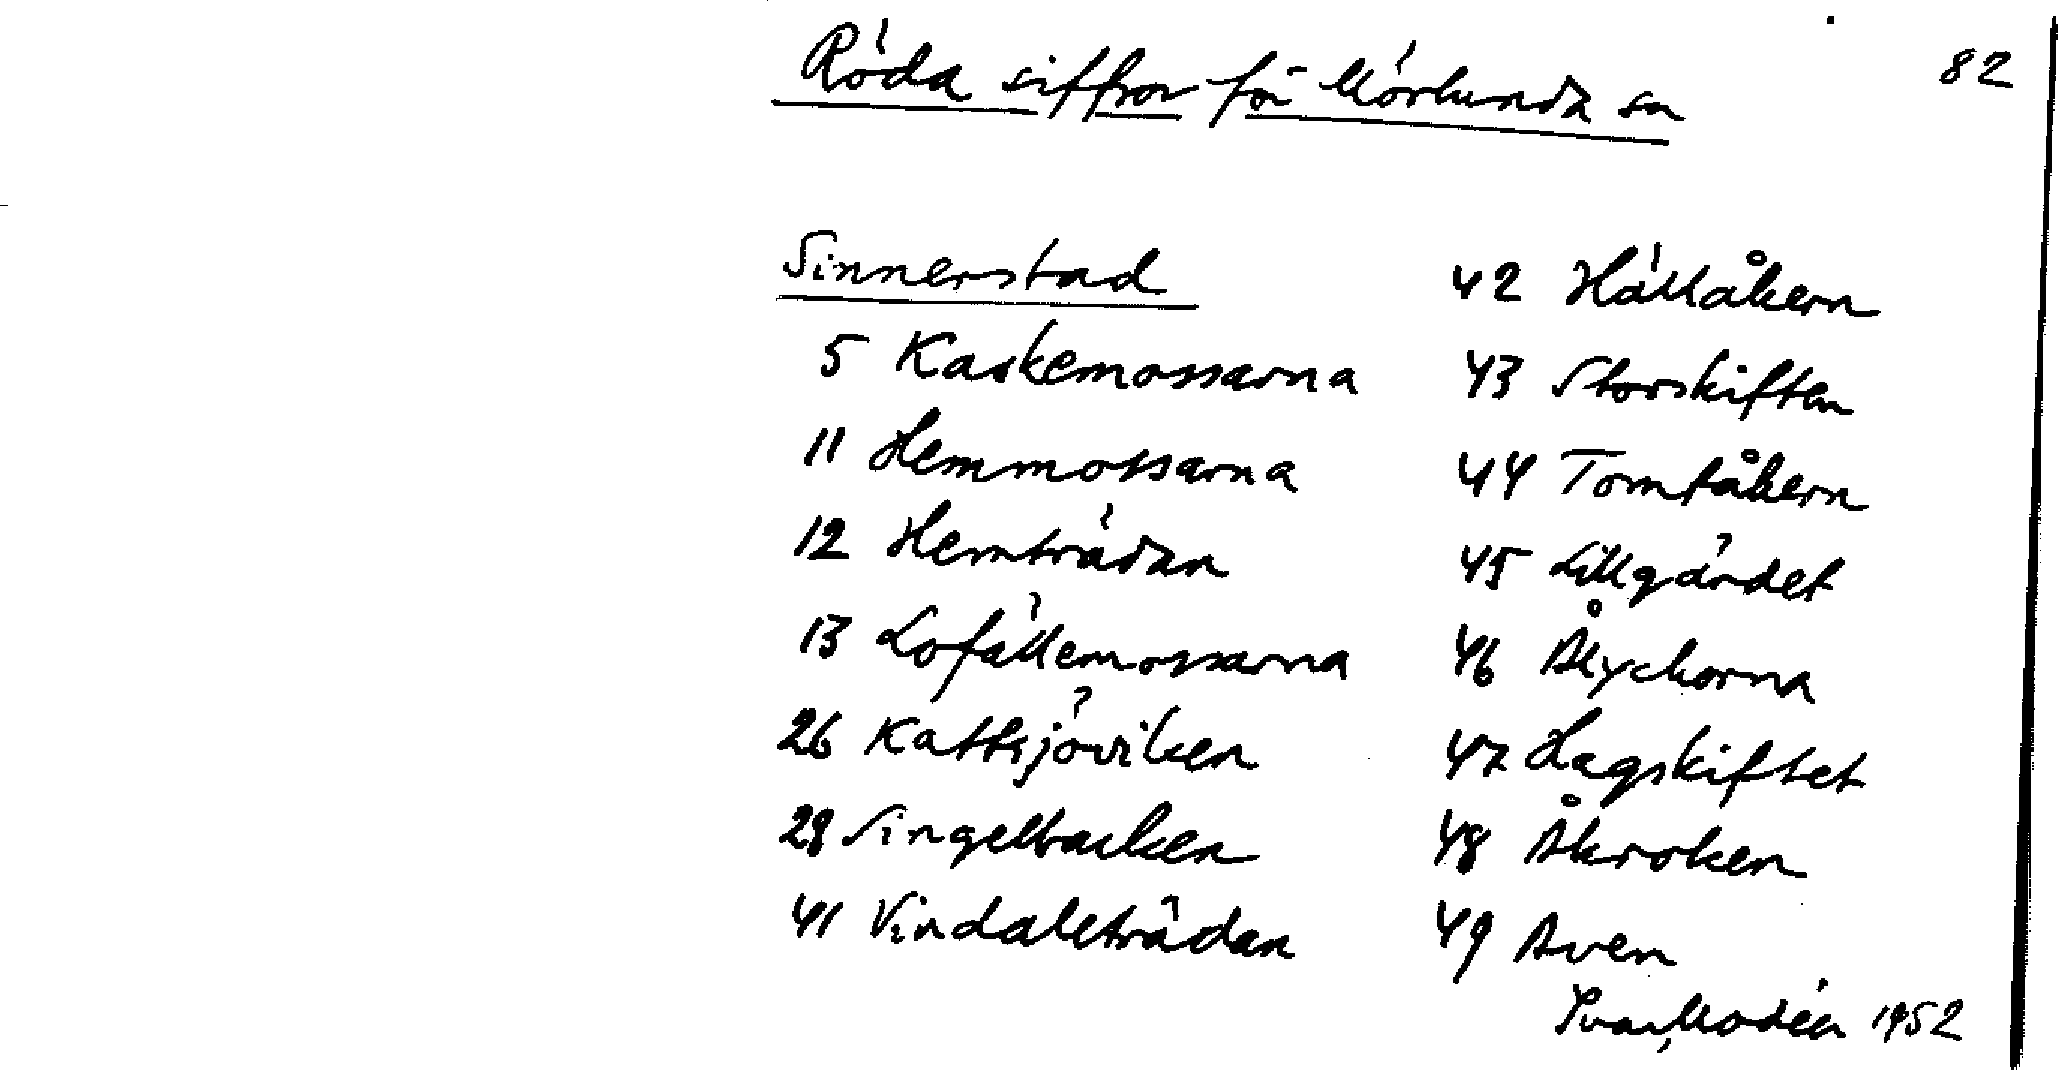 Röda siffror för Mörlunda sn
82
Sinnerstad
5 Kaskemossarna
11 Hemmossarna
12 Hemträdan
13 Lofällemossarna
26 Kattsjöviken
28 Singelbacken
41 Vindaleträdan
42 Hällåkern
43 Storskiften
44 Tomtåkern
45 Lillgärdet
46 Ålyckorna
47 Hagskiftet
48 Åkroken
49 Aven
Ivar Modéer 1952